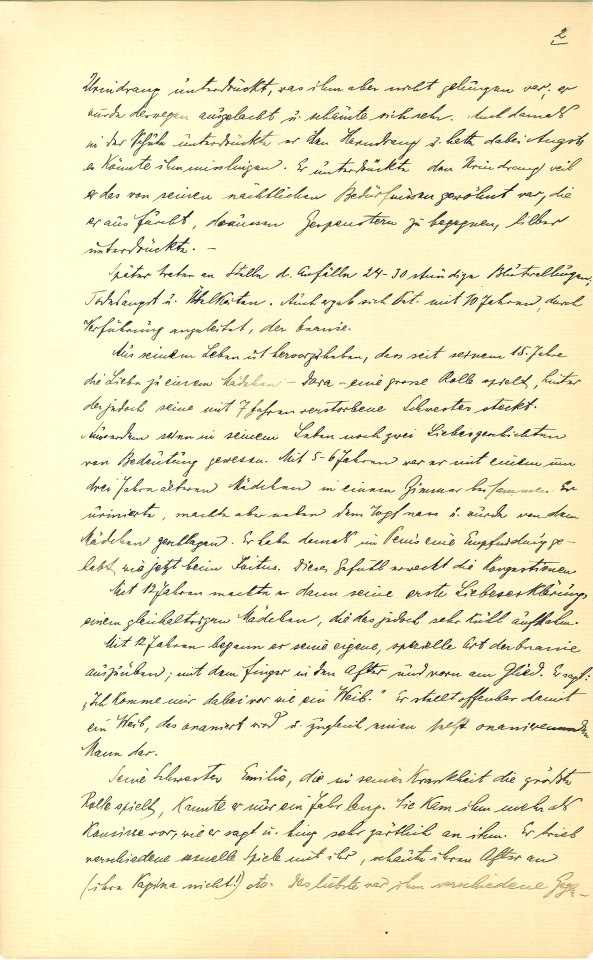 2
Urindrang unterdrückt, was ihm aber nicht gelungen war, er
wurde deswegen ausgelacht u. schämte sich sehr. Auch damals
in der Schule unterdrückte er den Harndrang u. hatte dabei Angst,
es könnte ihm misslingen. Er unterdrückte den Urindrang weil
er das von seinen nächtlichen Bedürfnissen gewöhnt war, die
er aus Furcht, draussen Gespenstern zu begegnen, lieber
unterdrückte. —
Später traten an Stelle d. Anfälle 24-30 stündige Blutwallungen,
Todesangst u. Übelkeiten. Auch ergab sich Pat. mit 10 Jahren, durch
Verführung angeleitet, der Onanie.
Aus seinem Leben ist hervorzuheben, dass seit seinem 15. Jahre
die Liebe zu einem Mädchen – Dora – eine grosse Rolle spielt, hinter
der jedoch seine mit 7 Jahren verstorbene Schwester steckt.
Ausserdem seien in seinem Leben noch zwei Liebesgeschichten
von Bedeutung gewesen. Mit 5-6 Jahren war er mit einem um
drei Jahre älteren Mädchen in einem Zimmer beisammen. Er
urinierte, machte aber neben dem Topf nass u. wurde von dem
Mädchen geschlagen. Er habe damals im Penis eine Empfindung ge-
habt, wie jetzt beim Coitus. Dieses Gefühl erweckt die Congestionen
Mit 12 Jahren machte er dann seine erste Liebeserklärung,
einem gleichaltrigen Mädchen, die das jedoch sehr kühl aufnahm.
Mit 12 Jahren begann er seine eigene, spezielle Art der Onanie
auszuüben; mit dem Finger in den After und vorn am Glied. Er sagt:
„Ich komme mir dabei vor wie ein Weib." Er stellt offenbar damit
ein Weib, das onaniert wird u. zugleich einen selbst onanierenden
Mann dar.
Seine Schwester Emilie, die in seiner Krankheit die grösste
Rolle spielt, kannte er nur ein Jahr lang. Sie kam ihm mehr als
Cousine vor, wie er sagt u. hing sehr zärtlich an ihm. Er trieb
verschiedene sexuelle Spiele mit ihr, schaute ihren After an
(ihre Vagina nicht!) etc. Das liebste war ihm verschiedene Gege-